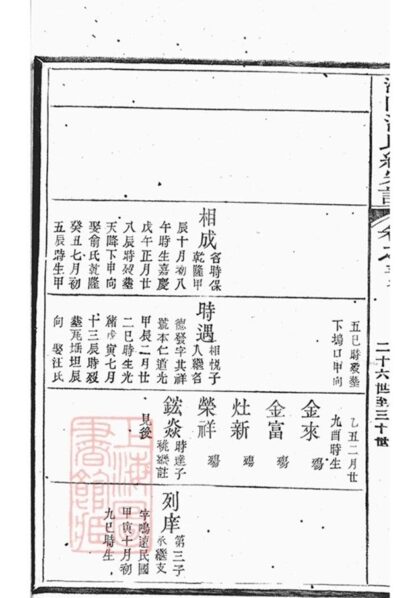 二十六世至三十世
相成 名時保
乾隆甲
辰十月初八
午時生嘉慶
戊午正月廿
八辰時歿塟
天降下申向
娶俞氏乾隆
癸丑七月初
五辰時生甲
五巳時歿塟
下塢口甲向
時遇 相悅子
入繼名
德發字其祥
號本仁道光
甲辰二月廿
二巳時生光
緒戊寅七月
十三辰時歿
塟瓦坦辰
向 娶汪氏
乙丑二月廿
九酉時生
金來 殤
金富 殤
灶新 殤
榮祥 殤
鋐焱 時達子
祧繼註
見後
列庠 第三子
承繼支
字鳴遠民國
甲寅十月初
九巳時生
上海圖書館藏